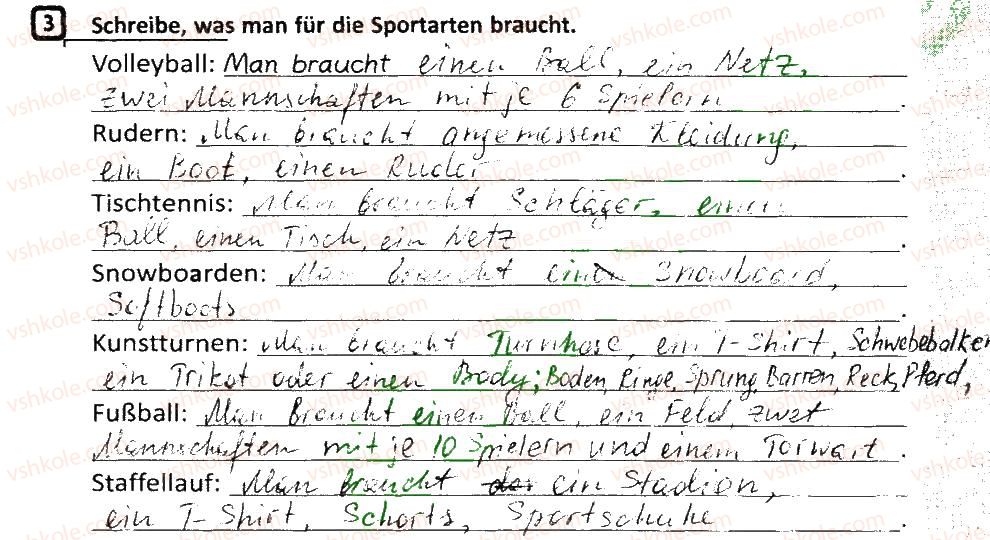 3 Schreibe, was man für die Sportarten braucht.
Volleyball: Man braucht einen Ball, ein Netz,
zwei Mannschaften mit je 6 Spielern.
Rudern: Man braucht angemessene Kleidung,
ein Boot, einen Ruder.
Tischtennis: Man braucht Schläger, einen
Ball, einen Tisch, ein Netz.
Snowboarden: Man braucht ein Snowboard,
Softboots.
Kunstturnen: Man braucht Turnhose, ein T-Shirt, Schwebebalken
ein Trikot oder einen Body; Boden, Ringe, Sprung, Barren, Reck, Pferd,
Fußball: Man braucht einen Ball, ein Feld, zwei
Mannschaften mit je 10 Spielern und einem Torwart.
Staffellauf: Man braucht ein Stadion,
ein T-Shirt, Schorts, Sportschuhe.
vshkole.com